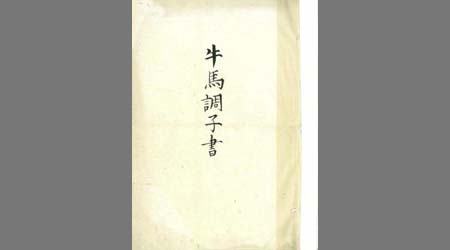 牛馬調子書